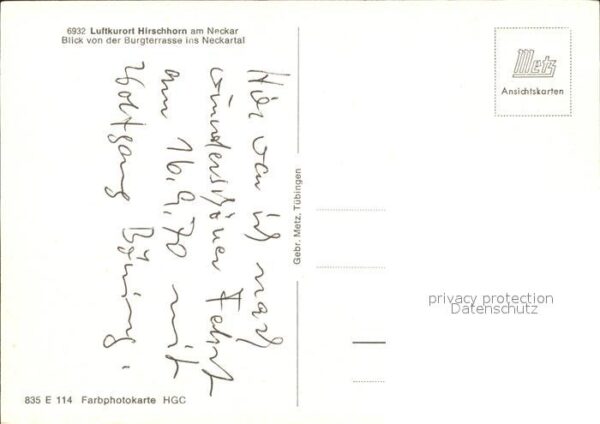 6932 Luftkurort Hirschhorn am Neckar
Blick von der Burgterrasse ins Neckartal
Hier war ich nach
wunderschöner Fahrt
am 16.9.70 mit
Wolfgang
Gebr. Metz, Tübingen
Metz
Ansichtskarten
privacy protection
Datenschutz
835 E 114 Farbphotokarte HGC